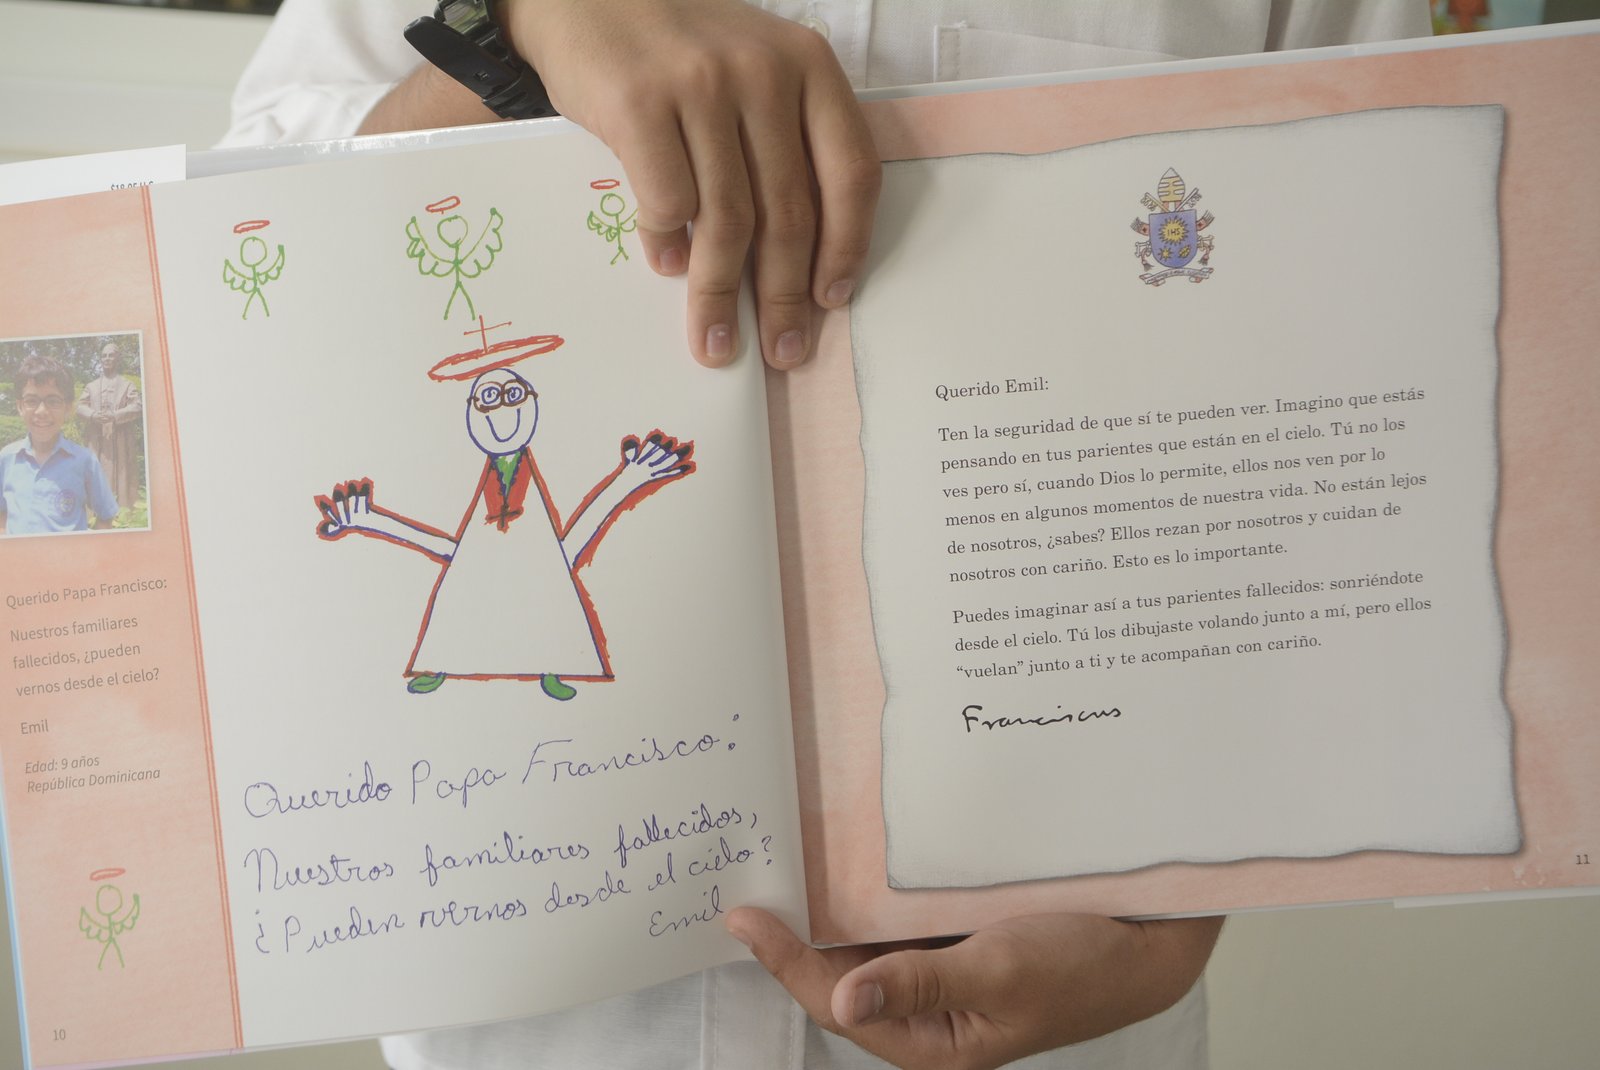 Querido Papa Francisco:
Nuestros familiares
fallecidos, ¿pueden
vernos desde el cielo?
Emil
Edad: 9 años
República Dominicana
10
Querido Papa Francisco:
Nuestros familiares fallecidos,
¿Pueden vernos desde el cielo?
Emil
IHS
Querido Emil:
Ten la seguridad de que sí te pueden ver. Imagino que estás
pensando en tus parientes que están en el cielo. Tú no los
ves pero sí, cuando Dios lo permite, ellos nos ven por lo
menos en algunos momentos de nuestra vida. No están lejos
de nosotros, ¿sabes? Ellos rezan por nosotros y cuidan de
nosotros con cariño. Esto es lo importante.
Puedes imaginar así a tus parientes fallecidos: sonriéndote
desde el cielo. Tú los dibujaste volando junto a mí, pero ellos
“vuelan” junto a ti y te acompañan con cariño.
Franciscus
11